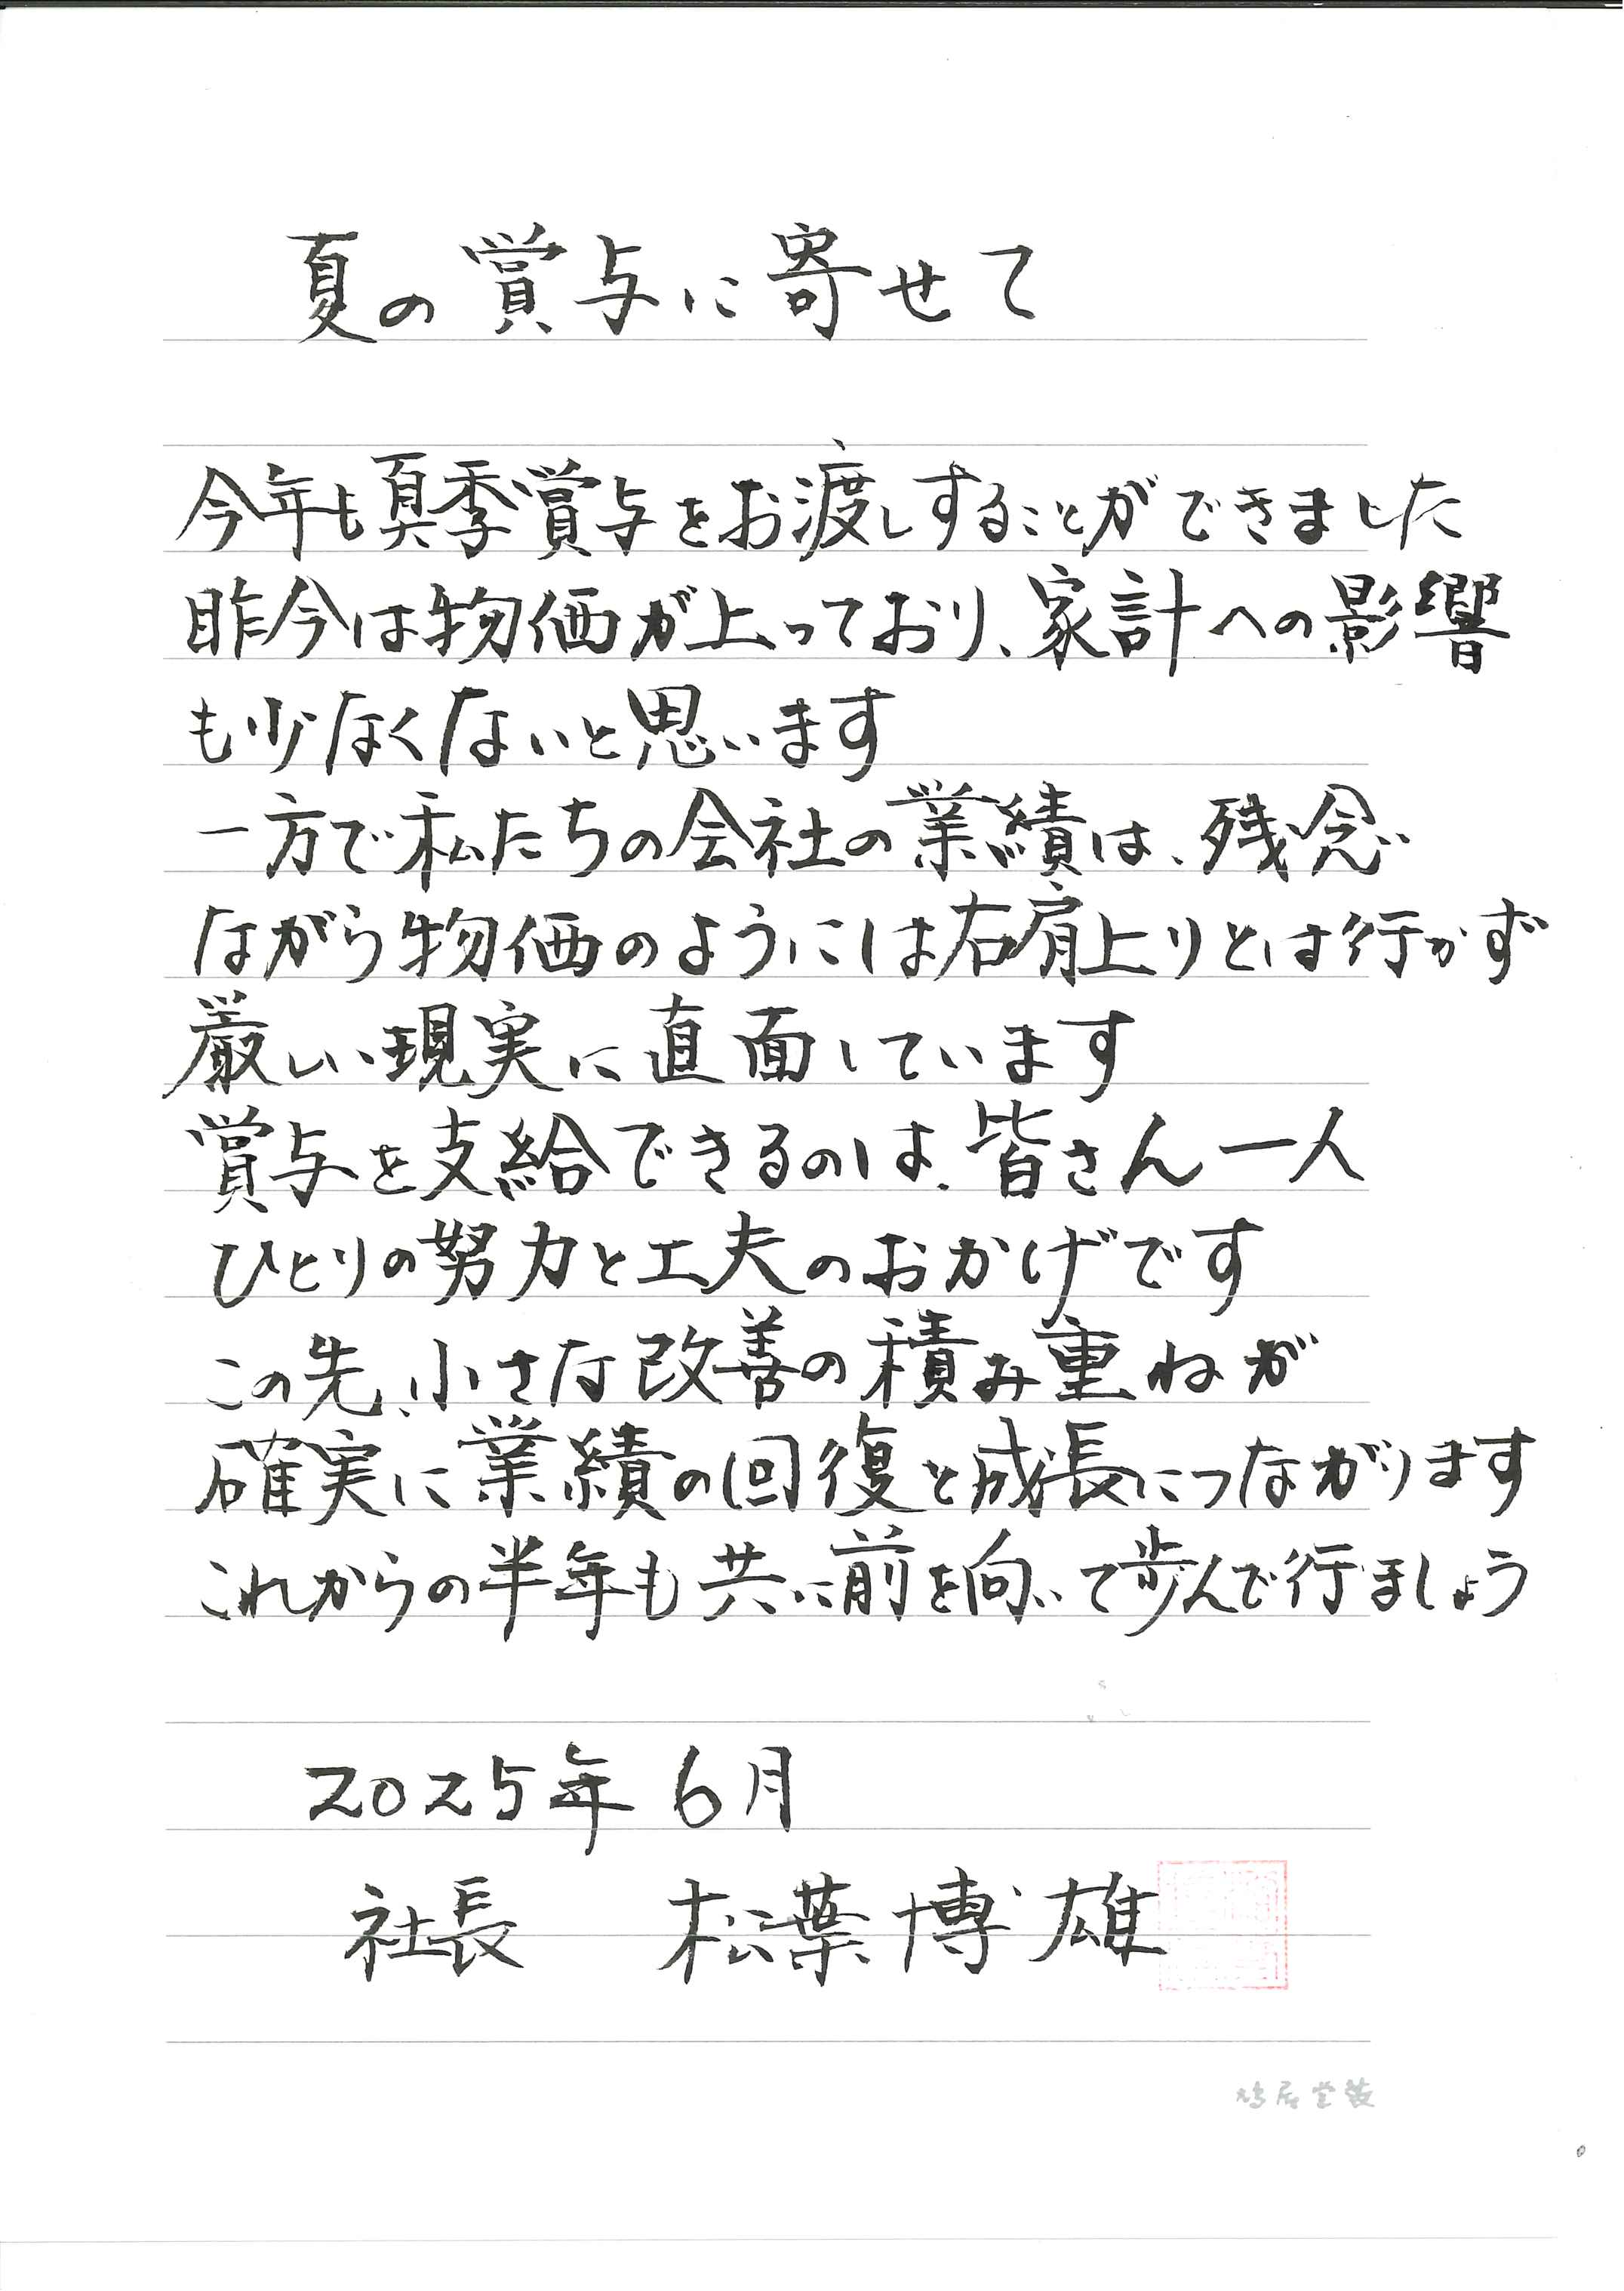 夏の賞与に寄せて
今年も夏季賞与をお渡しすることができました
昨今は物価が上っており、家計への影響
も少なくないと思います
一方で私たちの会社の業績は、残念
ながら物価のようには右肩上りとは行かず
厳しい現実に直面しています
賞与を支給できるのは、皆さん一人
ひとりの努力と工夫のおかげです
この先、小さな改善の積み重ねが
確実に業績の回復と成長につながります
これからの半年も共に前を向いて歩んで行ましょう
2025年 6月
社長 松葉博雄
鳩居堂製